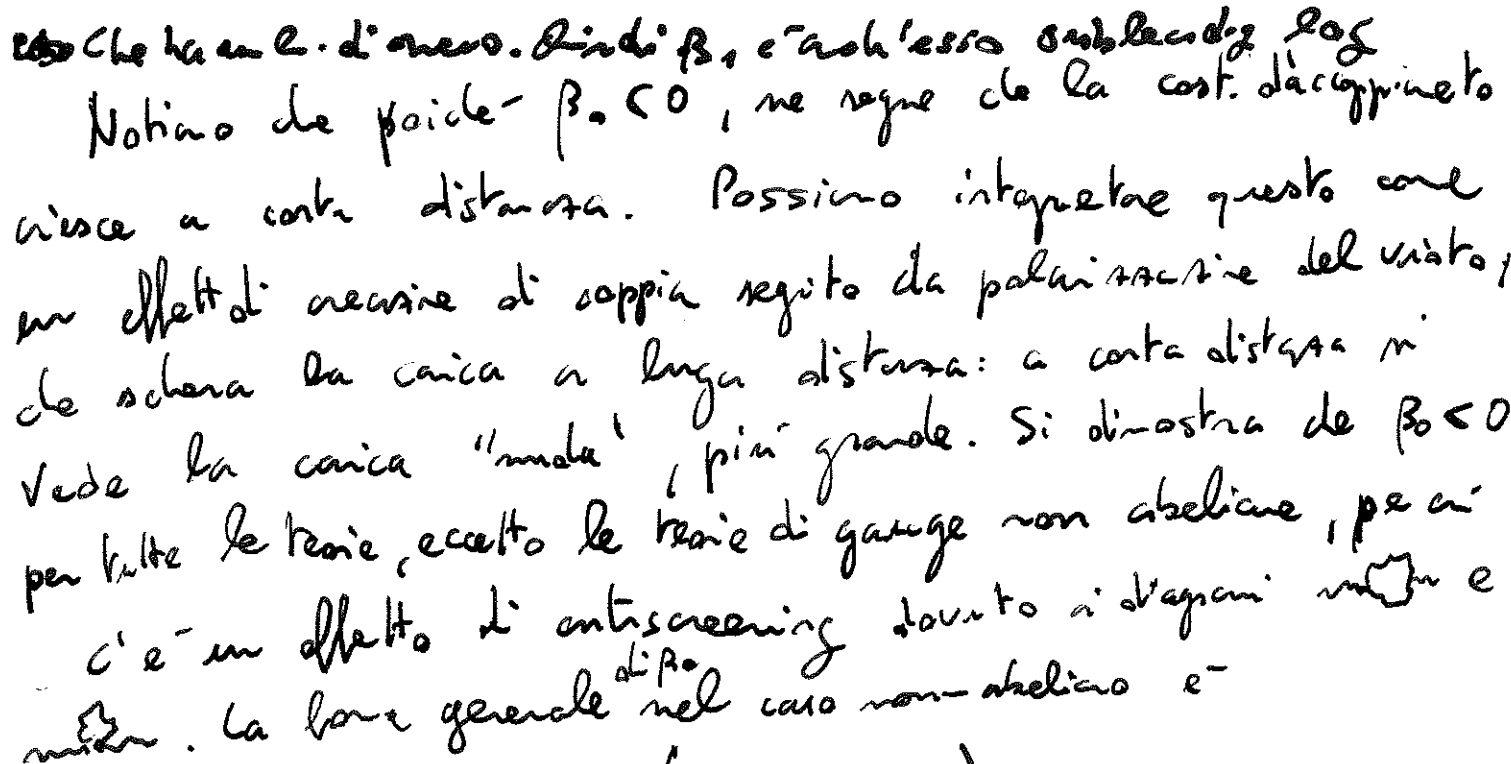 che ha un l. di meno. Quindi β₁ è anch'esso subleading log
Notiamo che poiché β₀ < 0, ne segue che la cost. d'accoppiamento
cresce a corta distanza. Possiamo interpretare questo come
un effetto di creazione di coppia seguito da polarizzazione del vuoto,
che scherma la carica a lunga distanza: a corta distanza si
vede la carica "nuda", più grande. Si dimostra che β₀ < 0
per tutte le teorie, eccetto le teorie di gauge non abeliane, per cui
c'è un effetto di antiscreening dovuto ai diagrammi e
. La forma generale di β₀ nel caso non-abeliano è